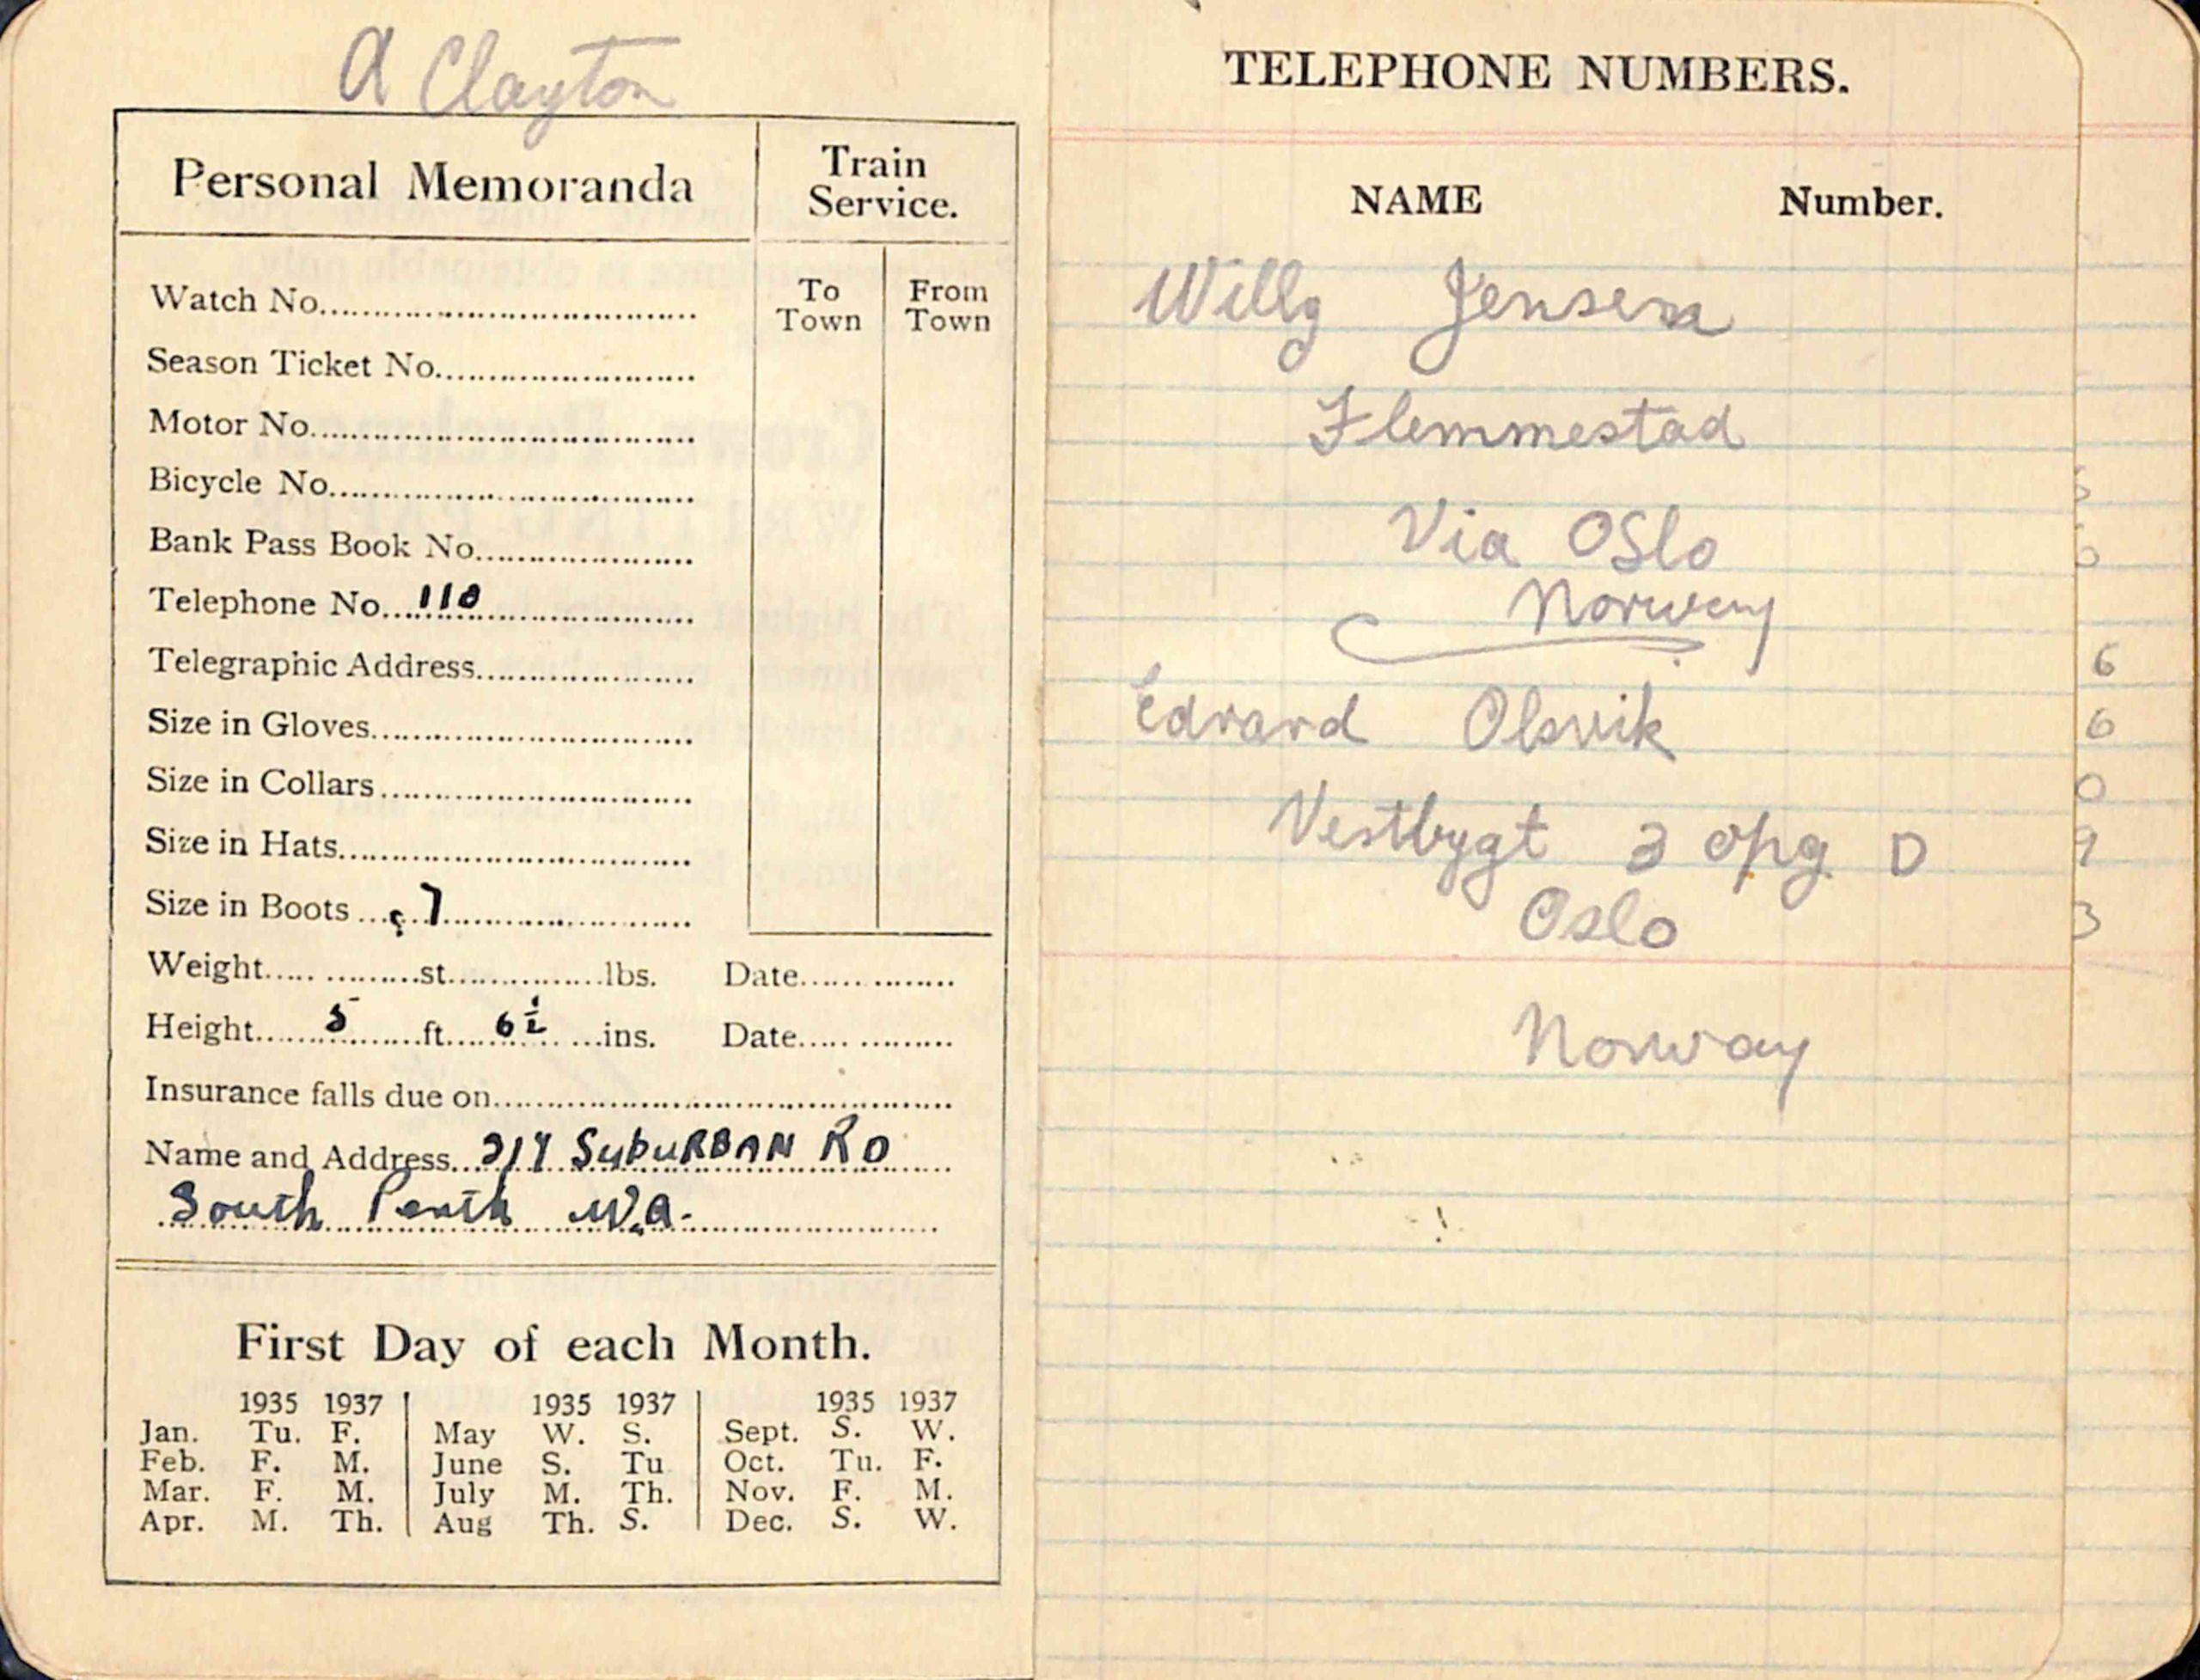 A Clayton
Personal Memoranda
Train Service.
To Town
From Town
Watch No.
Season Ticket No.
Motor No.
Bicycle No.
Bank Pass Book No.
Telephone No. 110
Telegraphic Address
Size in Gloves
Size in Collars
Size in Hats
Size in Boots 7
Weight st lbs. Date
Height 5 ft 6½ ins. Date
Insurance falls due on
Name and Address Suburban Rd
South Perth W.A.
First Day of each Month.
1935 1937 1935 1937 1935 1937
Jan. Tu. F. May W. S. Sept. S. W.
Feb. F. M. June S. Tu Oct. Tu. F.
Mar. F. M. July M. Th. Nov. F. M.
Apr. M. Th. Aug Th. S. Dec. S. W.
TELEPHONE NUMBERS.
NAME Number.
Willy Jensen
Flemmestad
Via Oslo
Norway
Edvard Olsvik
Vestbygt 3 opg D
Oslo
Norway
6
6
0
9
3